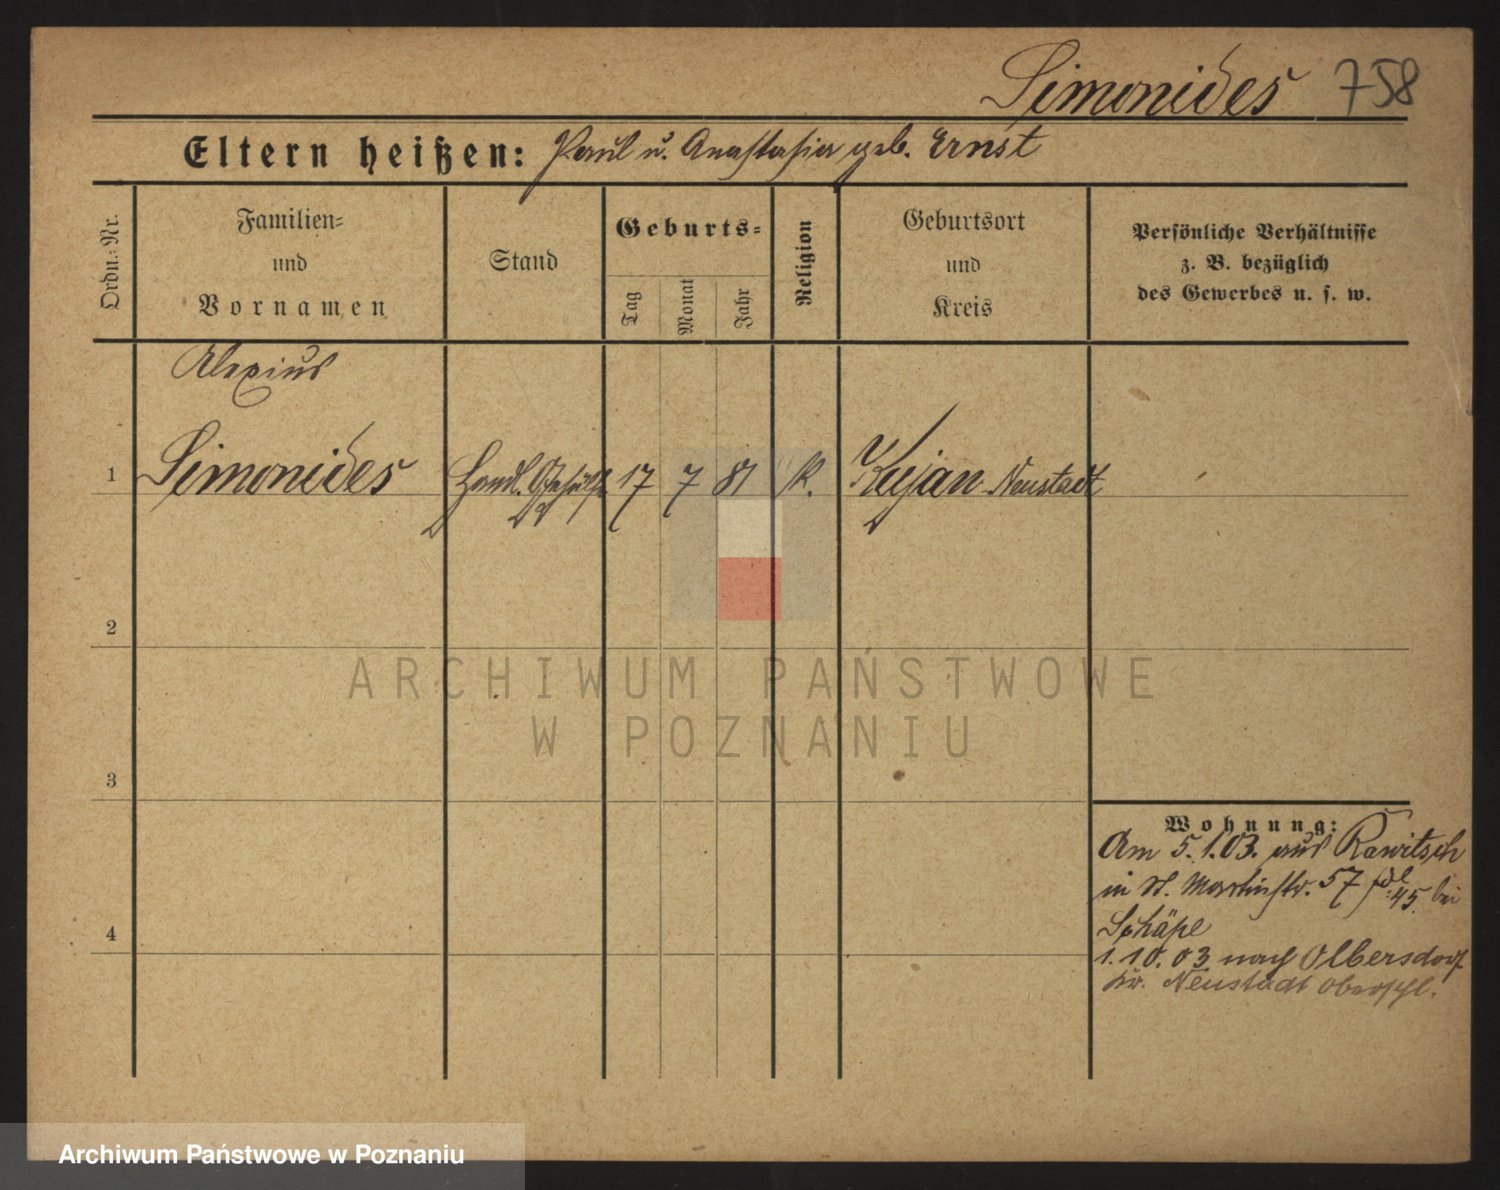 Simonides 758
Eltern heißen: Paul u. Anastasia geb. Ernst
Ordn.-Nr.
Familien-
und
Vornamen
Stand
Geburts-
Tag
Monat
Jahr
Religion
Geburtsort
und
Kreis
Persönliche Verhältnisse
z. B. bezüglich
des Gewerbes u. s. w.
Alexius
1 Simonides Handl. Gehülfe 17 7 81 k. Kujan Neustadt
2
3
4
Wohnung:
Am 5.1.03. aus Rawitsch
in St. Martinstr. 57 45 bei
Schäpe
1.10.03 nach Olbersdorf
Kr. Neustadt Oberschl.
ARCHIWUM PAŃSTWOWE
W POZNANIU
Archiwum Państwowe w Poznaniu